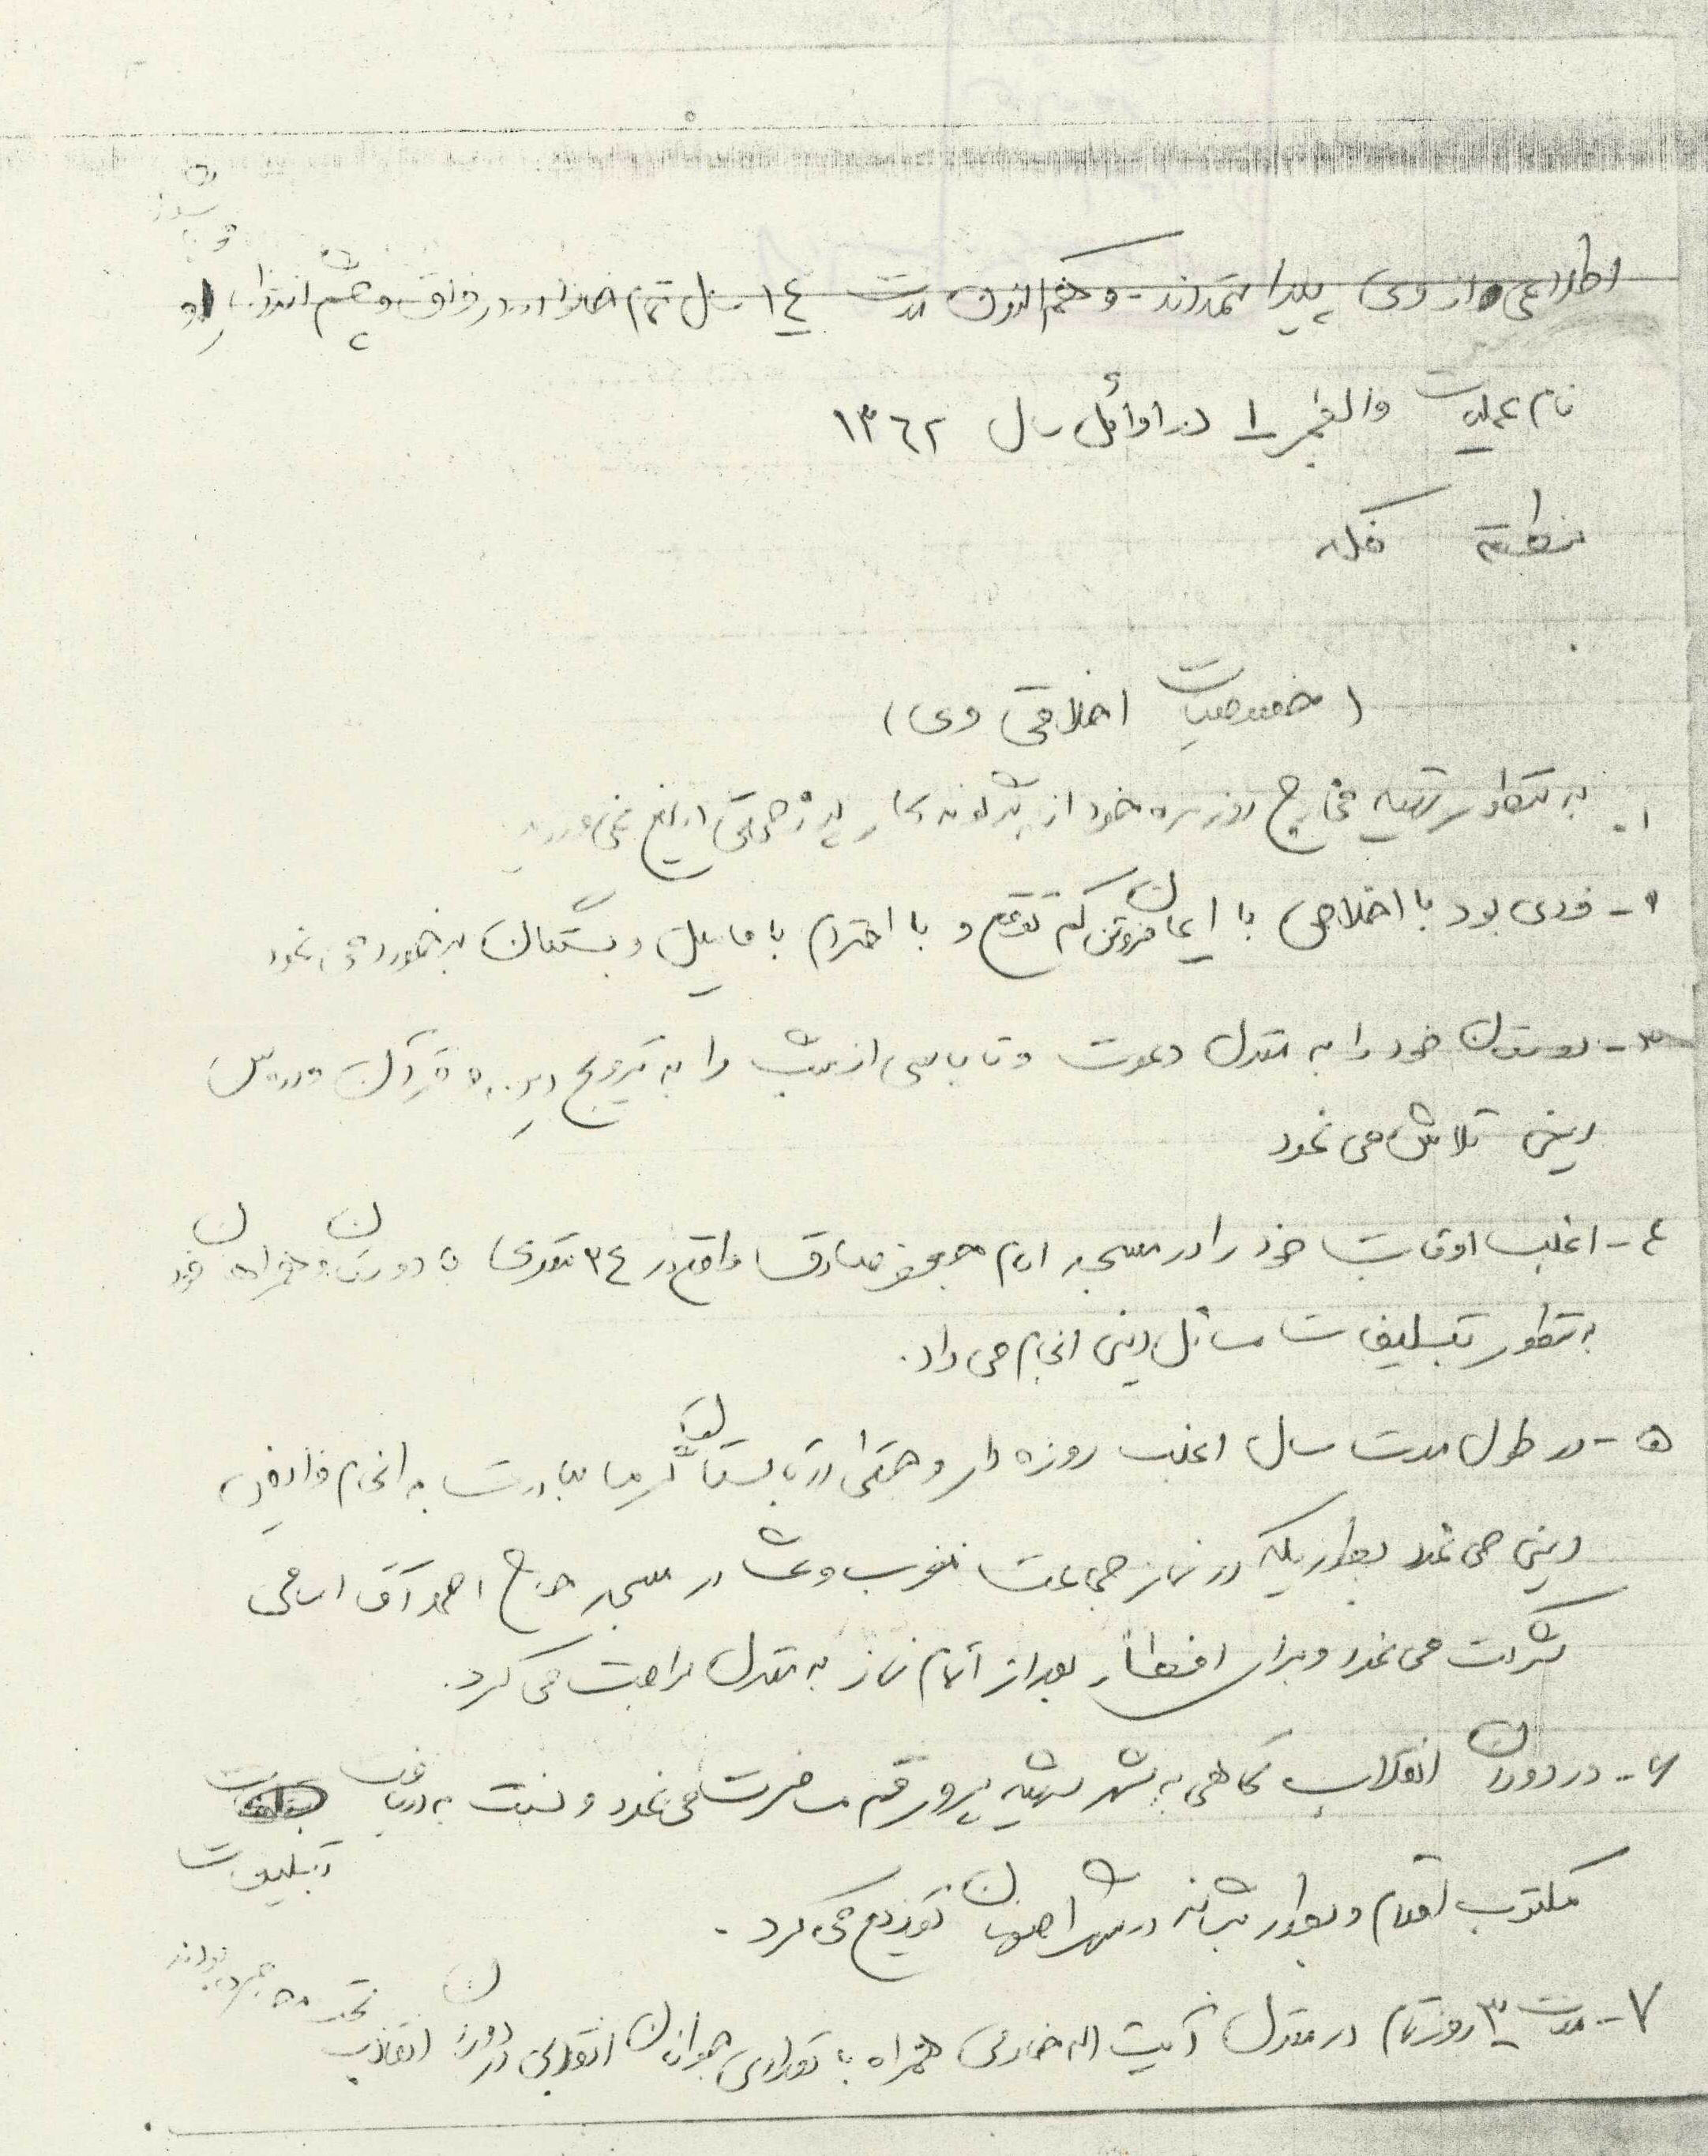 اطلاعی از وی پیدا ننموده‌اند - و هم اکنون مدت ١٤ سال تمام خانواده در فراق و چشم انتظار او
نام عملیات والفجر ١ در اوائل سال ١٣٦٢
منطقه فکه
(خصوصیات اخلاقی وی)
١- به منظور تهیه مخارج روزمره خود از هرگونه کار پر زحمتی دریغ نمی‌ورزید
٢- فردی بود با اخلاص با ایمان فروتن کم توقع و با احترام با فامیل و بستگان برخورد می نمود
٣- دوستان خود را به منزل دعوت و تا پاسی از شب را به ترویج دین و قرآن و دروس
دینی تلاش می نمود
٤- اغلب اوقات خود را در مسجد امام جعفر صادق واقع در ٣٤ متری با دوستان و همراهان خود
به منظور تبلیغات مسائل دینی انجام می داد.
٥- در طول مدت سال اغلب روزه دار و حتی در تابستان گرما مبادرت به انجام فرائض
دینی می نمود بطوریکه در نماز جماعت مغرب و عشا در مسجد حاج احمد آقا امامی
شرکت می نمود و برای افطار بعد از اتمام نماز به منزل مراجعت می کرد.
٦- در دوران انقلاب گاهی به شهر شهید پرور قم مسافرت می نمود و نسبت به دریافت
تبلیغات
مکتوب اقدام و بطور شبانه در شهر اصفهان توزیع می کرد.
٧- مدت ٣ روز تمام در منزل آیت اله خادمی همراه با تعدادی جوانان انقلابی در دوران انقلاب